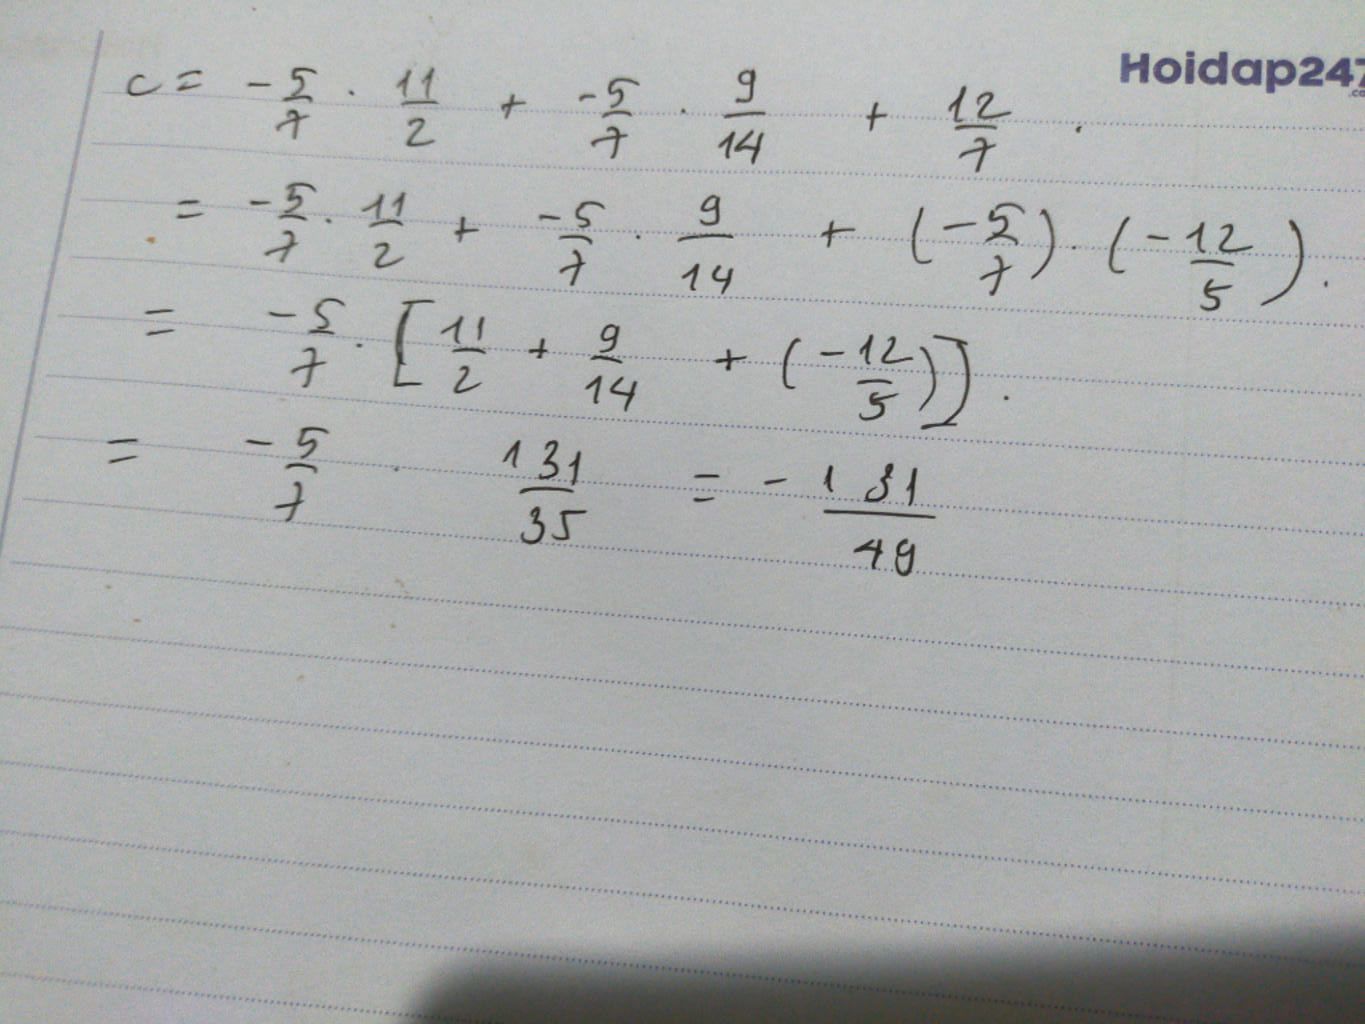 Hoidap247
.co
C = -5/7 . 11/2 + -5/7 . 9/14 + 12/7 .
= -5/7 . 11/2 + -5/7 . 9/14 + (-5/7) . (-12/5) .
= -5/7 . [11/2 + 9/14 + (-12/5)] .
= -5/7 . 131/35 = -131/49